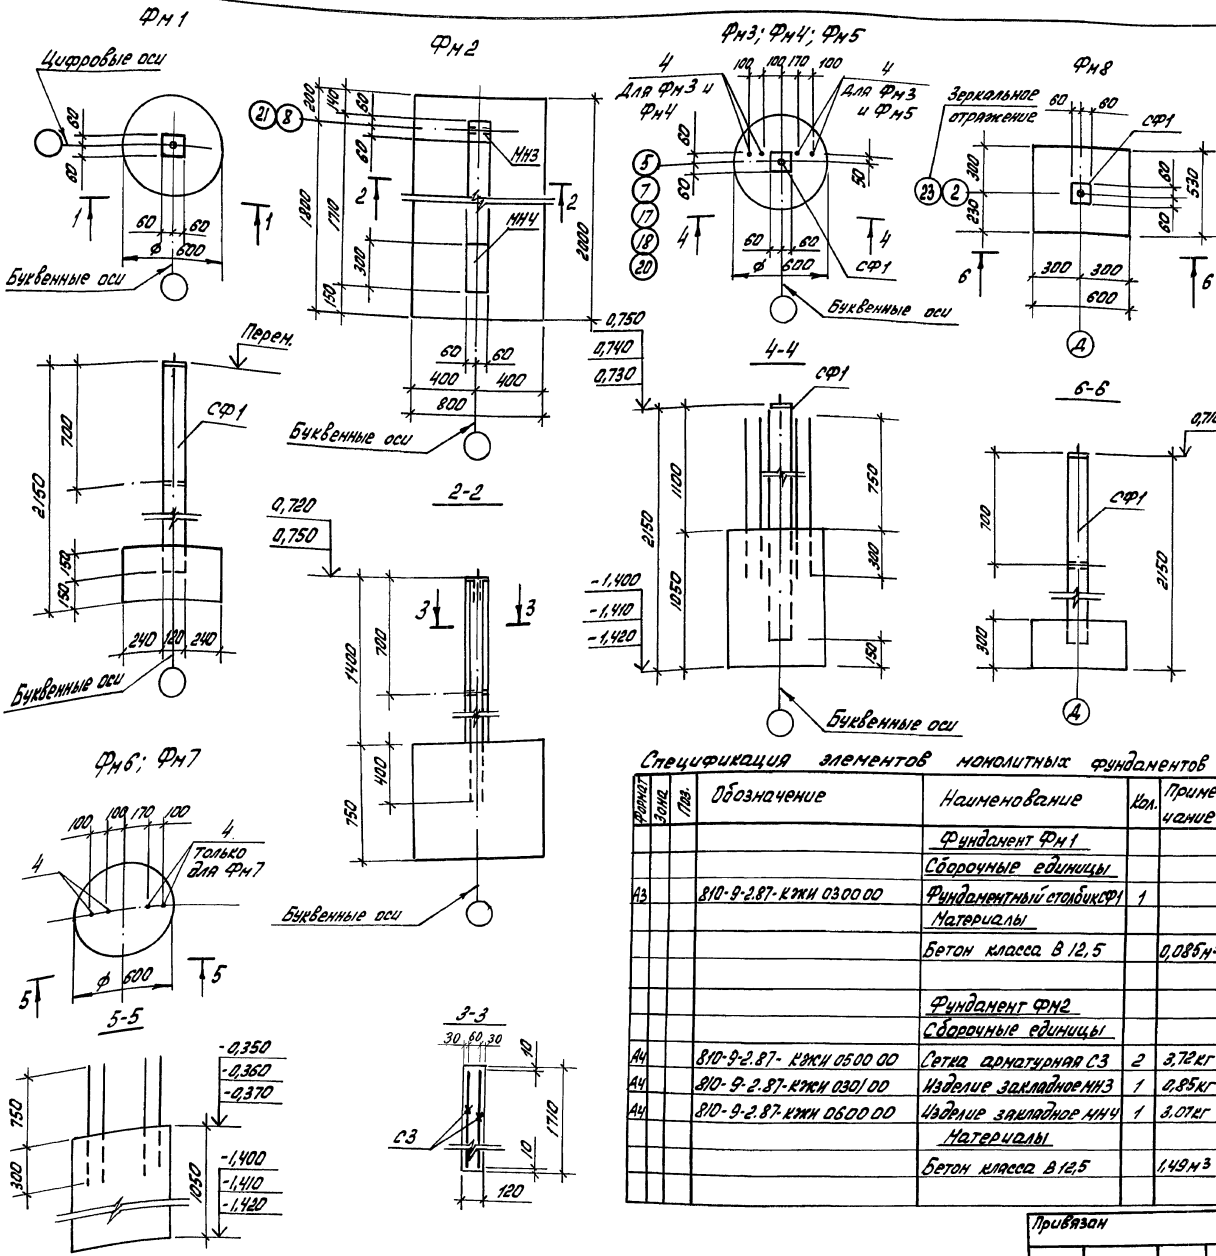 Фм1
Цифровые оси
60
60
1
1
60
60
ϕ 600
Буквенные оси
Перем.
СФ1
700
2150
150
150
240
120
240
Буквенные оси
Фм2
21
8
200
140
60
60
МН3
2
2
1800
1710
МН4
300
150
2000
60
60
400
400
800
Буквенные оси
2-2
0,720
0,750
3
3
1400
700
400
750
Буквенные оси
Фм3; Фм4; Фм5
4
Для Фм3 и
Фм4
100
100
170
100
4
Для Фм3
и Фм5
5
7
17
18
20
60
60
50
4
4
60
60
ϕ 600
СФ1
Буквенные оси
0,750
0,740
0,730
4-4
СФ1
1100
2150
1050
750
300
150
-1,400
-1,410
-1,420
Буквенные оси
Фм8
Зеркальное
отражение
60
60
СФ1
23
2
300
230
60
60
530
6
6
300
300
600
Д
6-6
СФ1
700
2150
300
Д
Фм6; Фм7
100
100
170
100
4
4
только
для Фм7
5
5
ϕ 600
5-5
-0,350
-0,360
-0,370
750
300
1050
-1,400
-1,410
-1,420
3-3
30
60
30
10
С3
1710
10
120
Спецификация элементов монолитных фундаментов
Формат Зона Поз. Обозначение Наименование Кол. Приме
чание
Фундамент Фм1
Сборочные единицы
А3 810-9-2.87-КЖИ 030000 Фундаментный столбик СФ1 1
Материалы
Бетон класса В 12,5 0,085м³
Фундамент Фм2
Сборочные единицы
А4 810-9-2.87-КЖИ 050000 Сетка арматурная С3 2 3,72кг
А4 810-9-2.87-КЖИ 030100 Изделие закладное МН3 1 0,85кг
А4 810-9-2.87-КЖИ 060000 Изделие закладное МН4 1 3,07кг
Материалы
Бетон класса В 12,5 1,49м³
Привязан